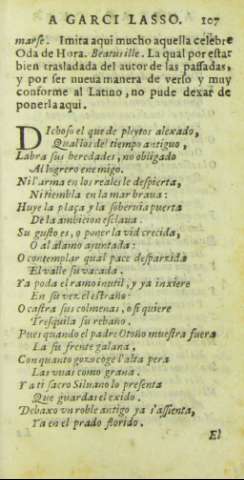 A GARCI LASSO. 107
marse. Imita aqui mucho aquella celebre
Oda de Hora. Beatus ille. La qual por estar
bien trasladada del autor de las passadas,
y por ser nueua manera de verso y muy
conforme al Latino, no pude dexar de
ponerla aqui.
Dichoso el que de pleytos alexado,
Qual los del tiempo antiguo,
Labra sus heredades, no obligado
Al logrero enemigo.
Ni l'arma en los reales le despierta,
Ni tiembla en la mar braua:
Huye la plaça y la soberuia puerta
De la ambicion esclaua.
Su gusto es, o poner la vid crecida,
O al alamo ayuntada:
O contemplar qual pace desparzida
El valle su vacada.
Ya poda el ramo inutil, y ya inxiere
En su vez el estraño:
O castra sus colmenas, o si quiere
Tresquila su rebaño.
Pues quando el padre Otoño muestra fuera
La su frente galana.
Con quanto gozo coge l'alta pera
Las vuas como grana.
Y a ti sacro Siluano lo presenta
Que guardas el exido.
Debaxo vn roble antigo ya s'assienta,
Ya en el prado florido.
El